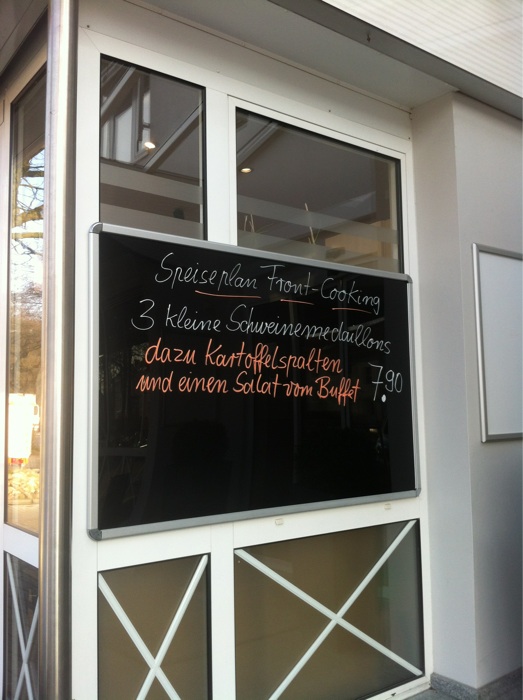 Speiseplan Front-Cooking
3 kleine Schweinemedaillons
dazu Kartoffelspalten
und einen Salat vom Buffet 7.90